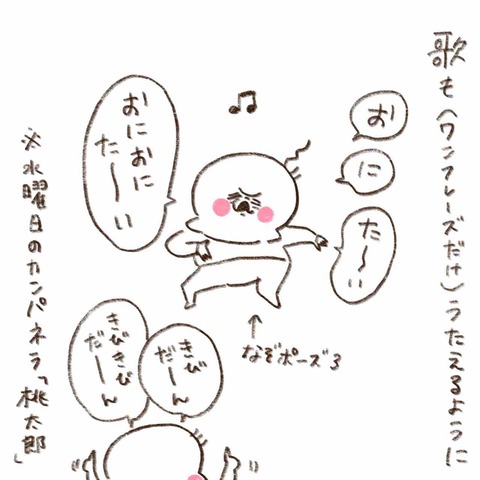 歌も(ワンフレーズだけ)うたえるように
お
に
た〜い
おにおに
た〜い
なぞポーズ3
きび
だーん
きびきび
だーん
※水曜日のカンパネラ「桃太郎」